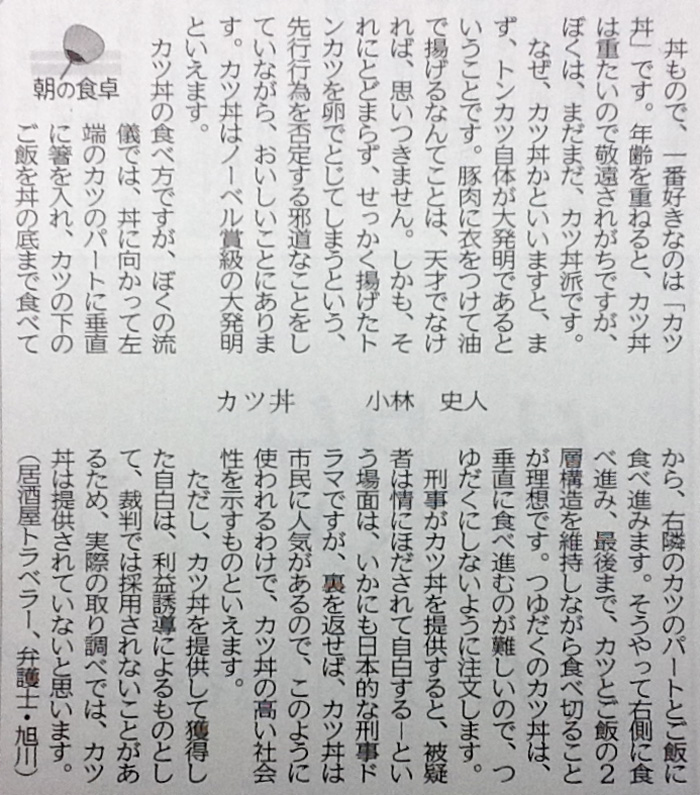 朝の食卓
カツ丼　小林　史人
丼もので、一番好きなのは「カツ
丼」です。年齢を重ねると、カツ丼
は重たいので敬遠されがちですが、
ぼくは、まだまだ、カツ丼派です。
なぜ、カツ丼かといいますと、ま
ず、トンカツ自体が大発明であると
いうことです。豚肉に衣をつけて油
で揚げるなんてことは、天才でなけ
れば、思いつきません。しかも、そ
れにとどまらず、せっかく揚げたト
ンカツを卵でとじてしまうという、
先行行為を否定する邪道なことをし
ていながら、おいしいことにありま
す。カツ丼はノーベル賞級の大発明
といえます。
カツ丼の食べ方ですが、ぼくの流
儀では、丼に向かって左
端のカツのパートに垂直
に箸を入れ、カツの下の
ご飯を丼の底まで食べて
から、右隣のカツのパートとご飯に
食べ進みます。そうやって右側に食
べ進み、最後まで、カツとご飯の2
層構造を維持しながら食べ切ること
が理想です。つゆだくのカツ丼は、
垂直に食べ進むのが難しいので、つ
ゆだくにしないように注文します。
刑事がカツ丼を提供すると、被疑
者は情にほだされて自白する―とい
う場面は、いかにも日本的な刑事ド
ラマですが、裏を返せば、カツ丼は
市民に人気があるので、このように
使われるわけで、カツ丼の高い社会
性を示すものといえます。
ただし、カツ丼を提供して獲得し
た自白は、利益誘導によるものとし
て、裁判では採用されないことがあ
るため、実際の取り調べでは、カツ
丼は提供されていないと思います。
（居酒屋トラベラー、弁護士・旭川）